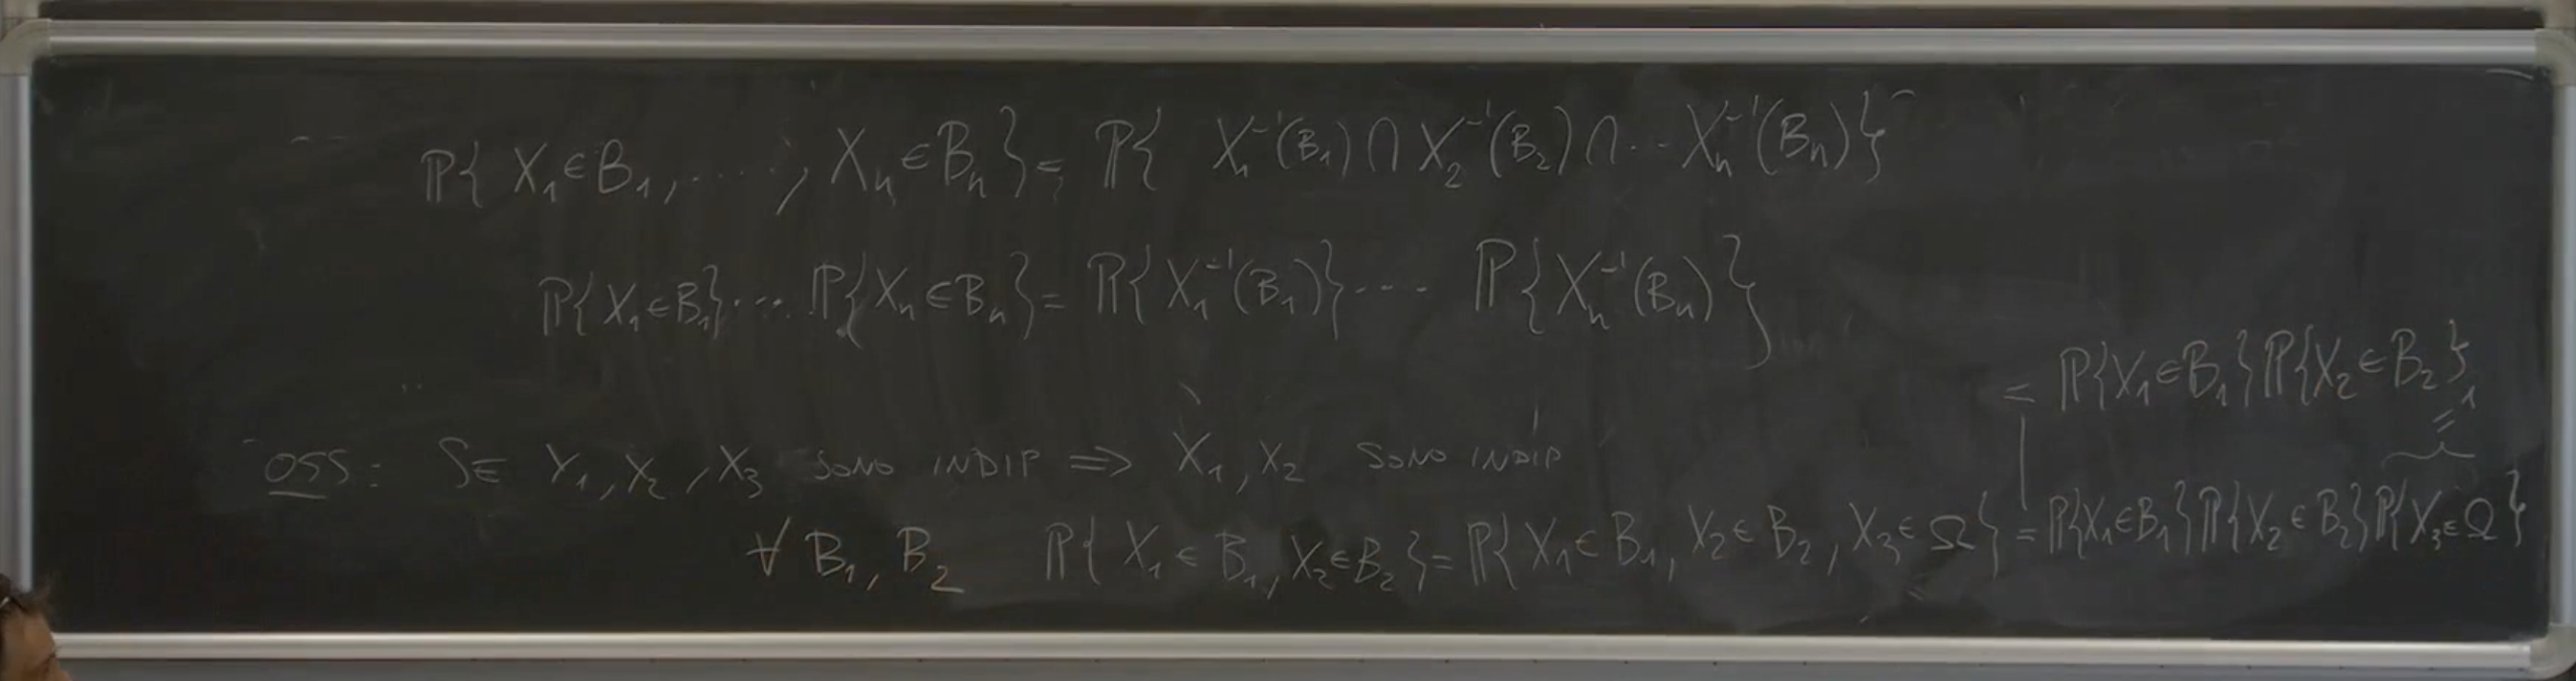 ℙ{ X₁∈B₁, ...., Xₙ∈Bₙ} = ℙ{ X₁⁻¹(B₁) ∩ X₂⁻¹(B₂) ∩ ... Xₙ⁻¹(Bₙ)}
ℙ{X₁∈B₁} .... ℙ{Xₙ∈Bₙ} = ℙ{X₁⁻¹(B₁)} .... ℙ{Xₙ⁻¹(Bₙ)}
= ℙ{X₁∈B₁}ℙ{X₂∈B₂}
1
=
OSS: SE X₁, X₂, X₃ SONO INDIP ⇒ X₁, X₂ SONO INDIP
∀ B₁, B₂ ℙ{ X₁∈B₁, X₂∈B₂} = ℙ{ X₁∈B₁, X₂∈B₂, X₃∈Ω} = ℙ{X₁∈B₁}ℙ{X₂∈B₂}ℙ{X₃∈Ω}